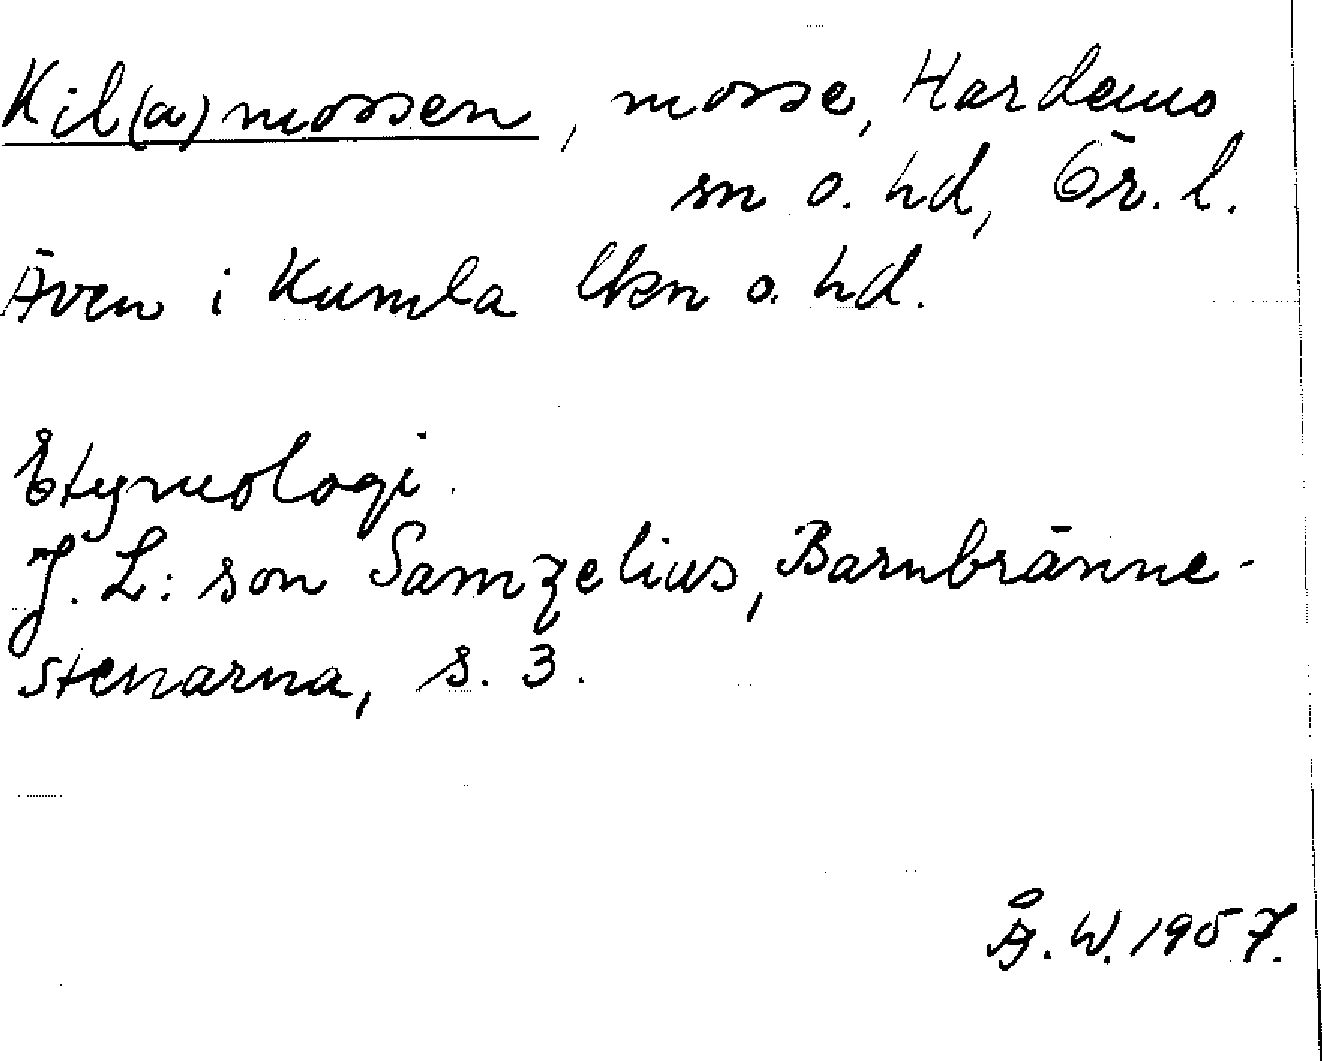 Kil(a)mossen, mosse, Hardemo
sn o. hd, Ör. l.
Även i Kumla lkn o. hd.
Etymologi.
J. L:son Samzelius, Barnbränne-
stenarna, s. 3.
Å. W. 1957.